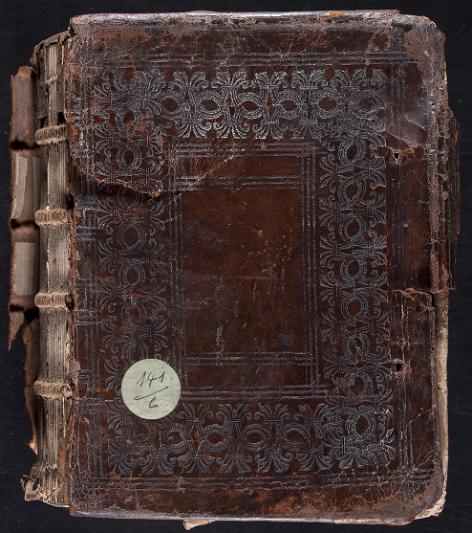 141.
6